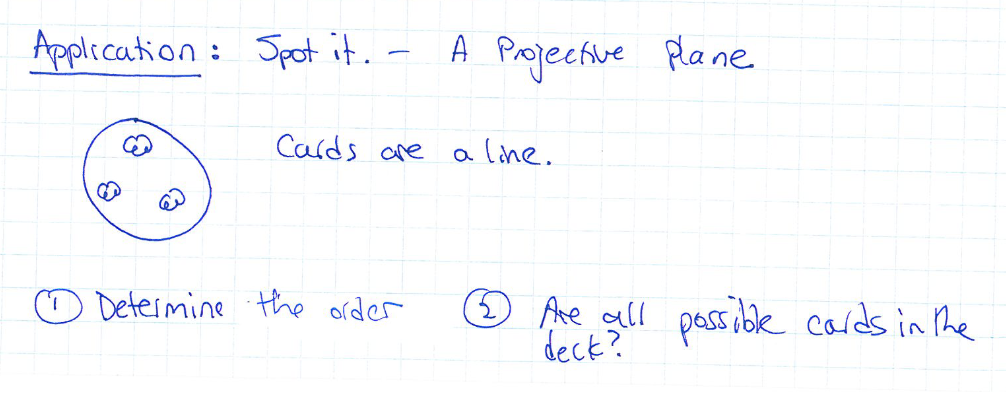 Application: Spot it. - A Projective plane
Cards are a line.
① Determine the order ② Are all possible cards in the
deck?